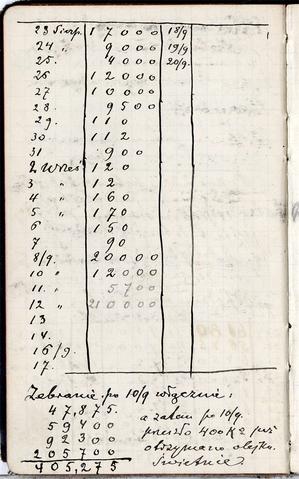 23 Sierp. 17000 18/9
24 „ 9000 19/9
25. 4000 20/9.
26 12000
27 10000
28. 9500
29. 110
30 112
31 900
2 Wrześ 120
3 „ 12
4 „ 160
5 „ 170
6 150
7 90
8/9. 20000
10 „ 12000
11. „ 5700
12 „ 210000
13
14.
16/9.
17.
Zebranie po 10/9 włącznie:
47,875.
59400
92300
205700
405,275
a zatem po 10/9.
przeszło 400 Kg już
otrzymano olejku.
Świetnie.